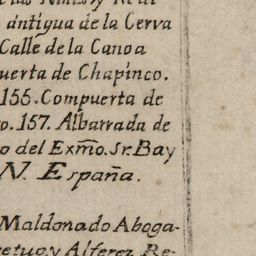 antigua de la Cerva
Calle de la Canoa
uerta de Chapinco.
155. Compuerta de
o. 157. Albarrada de
o del Exm̃o. Sr. Bay
N. España.
Maldonado Aboga-
retuo, y Alferez Re-